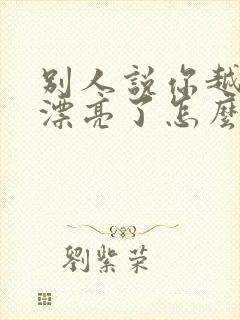 別人說你越
漂亮了怎麼
劉紫荣